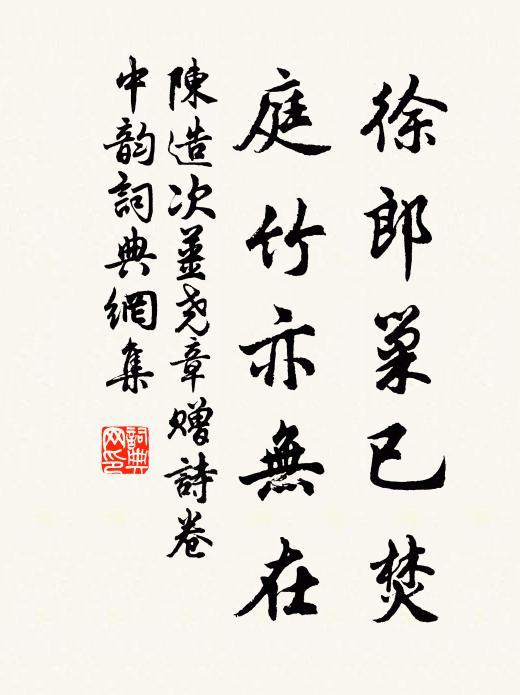 徐郎巢已焚
庭竹亦無在
陳造次薑尧章贈詩卷
中韵詞典網集
詞典
网印